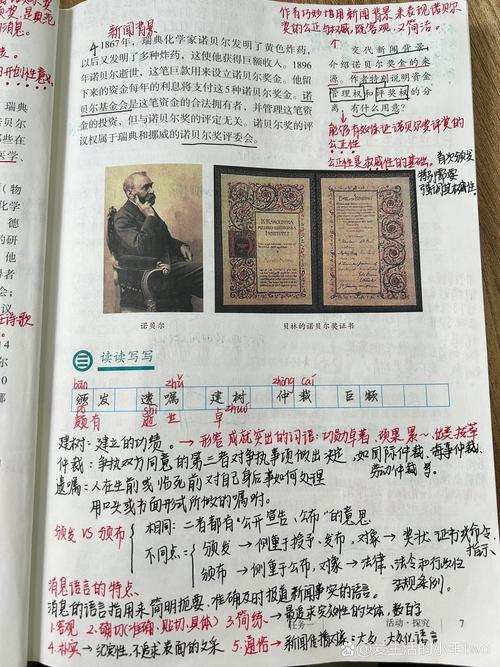 新闻背景
作者巧妙借用新闻背景来表现诺贝尔
奖的公正与权威,既客观、又简洁。
4 1867年,瑞典化学家诺贝尔发明了黄色炸药,
以后又发明了多种炸药,这使他获得巨额收入。1896
年诺贝尔逝世,这笔巨款用来设立诺贝尔奖金。他留
下来的资金每年的利息将支付这5种诺贝尔奖金。诺
贝尔基金会是这笔资金的合法拥有者,并管理这笔资
金的投资,但与诺贝尔奖的评定无关。诺贝尔奖的评
议权属于瑞典和挪威的诺贝尔奖评委会。
交代新闻背景,
介绍诺贝尔奖金的来
源。作者特别说明资金
管理权和评奖权的分
离,有什么用意?
能够有效保证诺贝尔奖评奖的
公正性
公正性是权威性的基础。
诺贝尔
贝林的诺贝尔奖证书
三 读读写写
bān zhǔ zhòng cái
颁发 遗嘱 建树 仲裁 巨额
颇有 逝世 卓
shì zhuó
建树:建立的功绩。→形容成就突出的词语:功勋卓著、硕果累~、出类拔萃
仲裁:争执双方同意的第三者对争执事项做出决定,如国际仲裁、海事仲裁、
劳动仲裁等。
遗嘱:人在生前或临死前对自己身后事如何处理
用口头或书面形式所做的嘱咐。
颁发 VS 颁布
相同:二者都有“公开宣告、公布”的意思
不同点:
颁发→侧重于授予、发布,对象→奖状、证书或命令、
指示
颁布→侧重于公布,对象→法律、法令和行政位
法规条例。
消息语言的特点
消息的语言指用来简明扼要、准确及时报道新闻事实的语言。
1.客观 2.确切(准确、贴切、具体) 3.简练→最追求实效性的文体,数百字
4.朴实→纪实性,不追求表面的文采 5.通俗→新闻传播对象:大众,大众化语言
任务一
活动·探究 7
知乎 @爱生活的小王two